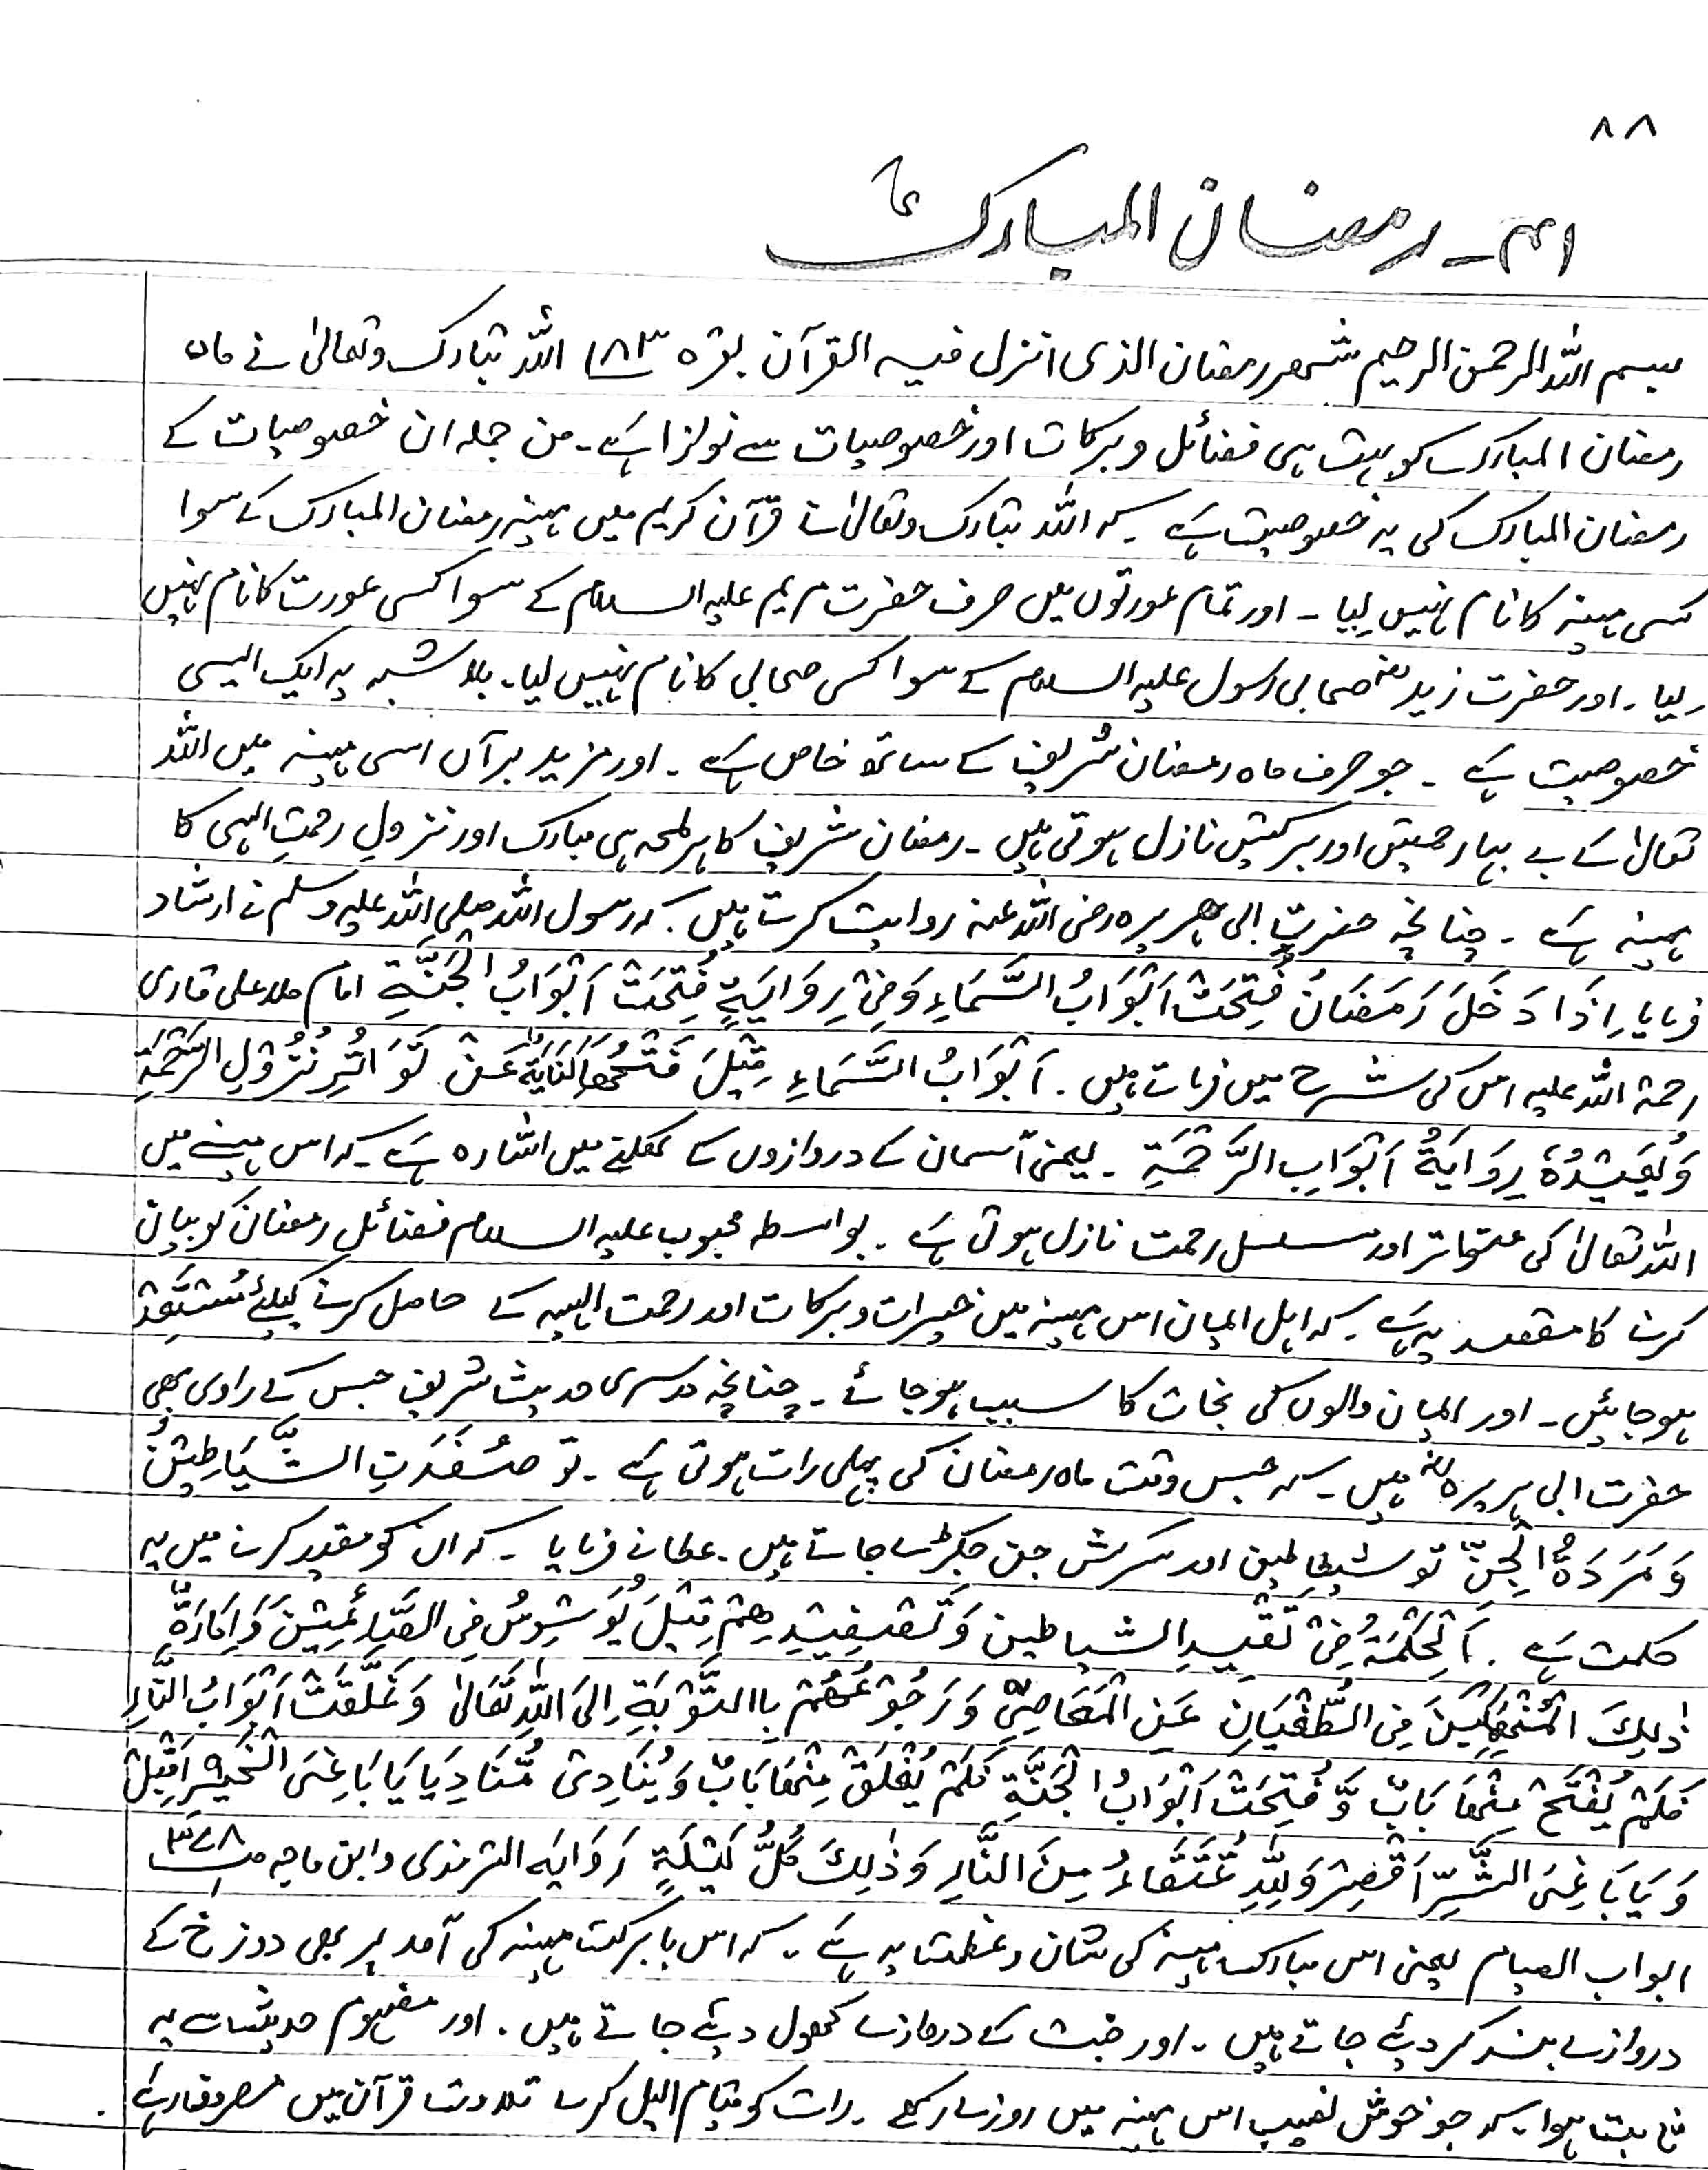 ۸۸
۴۱۔ رمضان المبارک
بسم اللہ الرحمن الرحیم شھر رمضان الذی انزل فیہ القرآن بقرہ ۱۸۳ اللہ تبارک وتعالیٰ نے ماہ
رمضان المبارک کو بہت ہی فضائل و برکات اور خصوصیات سے نوازا ہے۔ من جملہ ان خصوصیات کے
رمضان المبارک کی یہ خصوصیت ہے کہ اللہ تبارک وتعالیٰ نے قرآن کریم میں مہینہ رمضان المبارک کے سوا
کسی مہینہ کا نام نہیں لیا ۔ اور تمام عورتوں میں صرف حضرت مریم علیہ السلام کے سوا کسی عورت کا نام نہیں
لیا ۔ اور حضرت زیدؓ صحابی رسول علیہ السلام کے سوا کسی صحابی کا نام نہیں لیا۔ بلا شبہ یہ ایک ایسی
خصوصیت ہے ۔ جو صرف ماہ رمضان شریف کے ساتھ خاص ہے ۔ اور مزید برآں اسی مہینہ میں اللہ
تعالیٰ کے بے بہا رحمتیں اور برکتیں نازل ہوتی ہیں ۔ رمضان شریف کا ہر لمحہ ہی مبارک اور نزولِ رحمتِ الہی کا
مہینہ ہے ۔ چنانچہ حضرت ابی ھریرہ رضی اللہ عنہ روایت کرتے ہیں ۔ کہ رسول اللہ صلی اللہ علیہ وسلم نے ارشاد
فرمایا اِذَا دَخَلَ رَمَضَانُ فُتِحَتْ اَبْوَابُ السَّمَاءِ وَفِیْ رِوَایَةٍ فُتِحَتْ اَبْوَابُ الْجَنَّةِ امام ملا علی قاری
رحمۃ اللہ علیہ اس کی شرح میں فرماتے ہیں ۔ اَبْوَابُ السَّمَاءِ قِیْلَ فَتْحُھَا کِنَایَةٌ عَنْ تَوَاتُرِ نُزُوْلِ الرَّحْمَةِ
وَیُؤَیِّدُہٗ رِوَایَةُ اَبْوَابِ الرَّحْمَةِ ۔ یعنی آسمان کے دروازوں کے کھلنے میں اشارہ ہے کہ اس مہینے میں
اللہ تعالیٰ کی متواتر اور مسلسل رحمت نازل ہوتی ہے ۔ بواسطہ محبوب علیہ السلام فضائلِ رمضان کو بیان
کرنے کا مقصد یہ ہے ۔ کہ اہل ایمان اس مہینہ میں خیرات و برکات اور رحمت الہیہ کے حاصل کرنے کیلئے مُسْتَعِد
ہو جائیں ۔ اور ایمان والوں کی نجات کا سبب ہو جائے ۔ چنانچہ دوسری حدیث شریف جس کے راوی بھی
حضرت ابی ہریرہؓ ہیں ۔ کہ جس وقت ماہ رمضان کی پہلی رات ہوتی ہے ۔ تو صُفِّدَتِ الشَّیَاطِیْنُ
وَمَرَدَةُ الْجِنِّ تو شیطاطین اور سرکش جن جکڑے جاتے ہیں ۔ علما نے فرمایا ۔ کہ ان کو مقید کرنے میں یہ
حکمت ہے ۔ اَلْحِکْمَةُ فِیْ تَقْیِیدِ الشیاطین وَتَصْفِیْدِھِمْ قِیْلَ یُوَسْوِسُ فِی الصَّائِمِیْنَ وَاِمَارَةُ
ذٰلِکَ الْمُنْھَمِکِیْنَ فِی الطُّغْیَانِ عَنِ الْمَعَاصِیْ وَرَجُوْعُھُمْ بِاالتَّوْبَةِ اِلَی اللّٰہِ تَعَالیٰ وَغُلِّقَتْ اَبْوَابُ النَّارِ
فَلَمْ یُفْتَحْ مِنْھَا بَابٌ وَّفُتِحَتْ اَبْوَابُ الْجَنَّةِ فَلَمْ یُغْلَقْ مِنْھَا بَابٌ وَیُنَادِیْ مُنَادٍ یَا یَابَاغِیَ الْخَیْرِ اَقْبِلْ
وَیَابَاغِیَ الشَّرِّ اَقْصِرْ وَلِلّٰہِ عُتَقَاءُ مِنَ النَّارِ وَذٰلِکَ کُلُّ لَیْلَةٍ رَوَایَہ الترمذی وابن ماجہ
ابواب الصیام یعنی اس مبارک مہینہ کی شان و عظمت یہ ہے ۔ کہ اس بابرکت مہینہ کی آمد پر بھی دوزخ کے
دروازے بند کر دیئے جاتے ہیں ۔ اور جنت کے دروازے کھول دیئے جاتے ہیں ۔ اور مفہوم حدیث سے یہ
ثابت ہوا کہ جو خوش نصیب اس مہینہ میں روزے رکھے ۔ رات کو قیام الیل کرے تلاوت قرآن میں مصروف رہے ۔